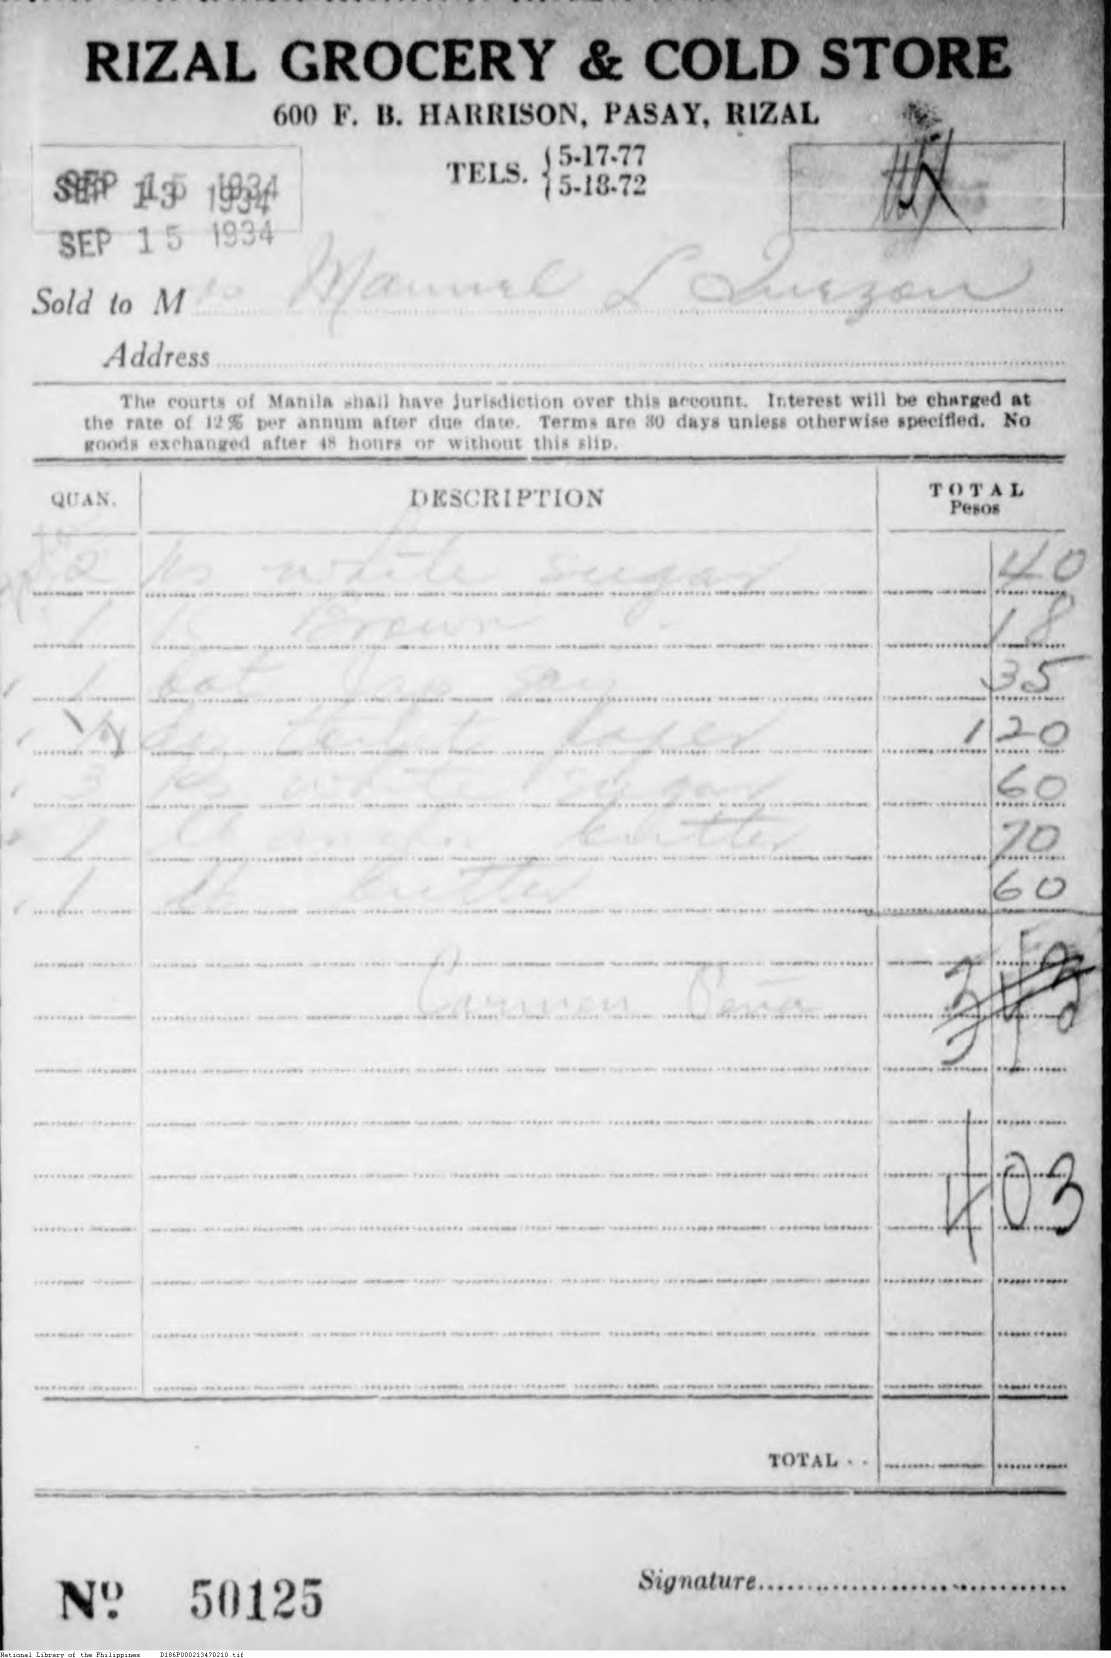 RIZAL GROCERY & COLD STORE
600 F. B. HARRISON, PASAY, RIZAL
TELS. { 5-17-77
5-18-72
SEP 13 1934
SEP 15 1934
Sold to Mrs Manuel L Quezon
Address
The courts of Manila shall have jurisdiction over this account. Interest will be charged at
the rate of 12% per annum after due date. Terms are 30 days unless otherwise specified. No
goods exchanged after 48 hours or without this slip.
QUAN. DESCRIPTION TOTAL
Pesos
2 ks white sugar 40
1 k Brown " 18
1 bot 35
white 1 20
3 ks white sugar 60
1 lb butter 70
1 lb butter 60
Carmen Peña
4 03
TOTAL - -
Signature
Nº 50125
National Library of the Philippines D186P000213470210.tif